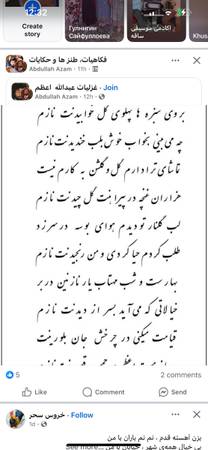 12:32
Create
story
Гулнигин
Сайфуллоева
آکادمی موسیقی
ساقه
Khus
فکاهیات، طنز ها و حکایات
Abdullah Azam · 11h ·
غزلیات عبدالله اعظم · Join
Abdullah Azam · 12h ·
بروی سبزه ها پهلوی گل خوابیدنت نازم
چه می بینی بخواب خوش بلب خندیدنت نازم
تماشای ترا دارم گل و گلشن به کارم نیست
هزاران غنچه در پیراهنت گل چیدنت نازم
لب گلنار تو دیدم هوای بوسه در سر زد
طلب کردم حیا کردی و من رنجیدنت نازم
بهارست و شب مهتاب یار نازنین در بر
خیالاتی که می آید بسر از دیدنت نازم
قیامت میکنی در چرخش جان بلورینت
5
2 comments
Like
Comment
Send
خروس سحر · Follow
1d ·
بزن آهسته قدم ، نم نم باران با من
See more...